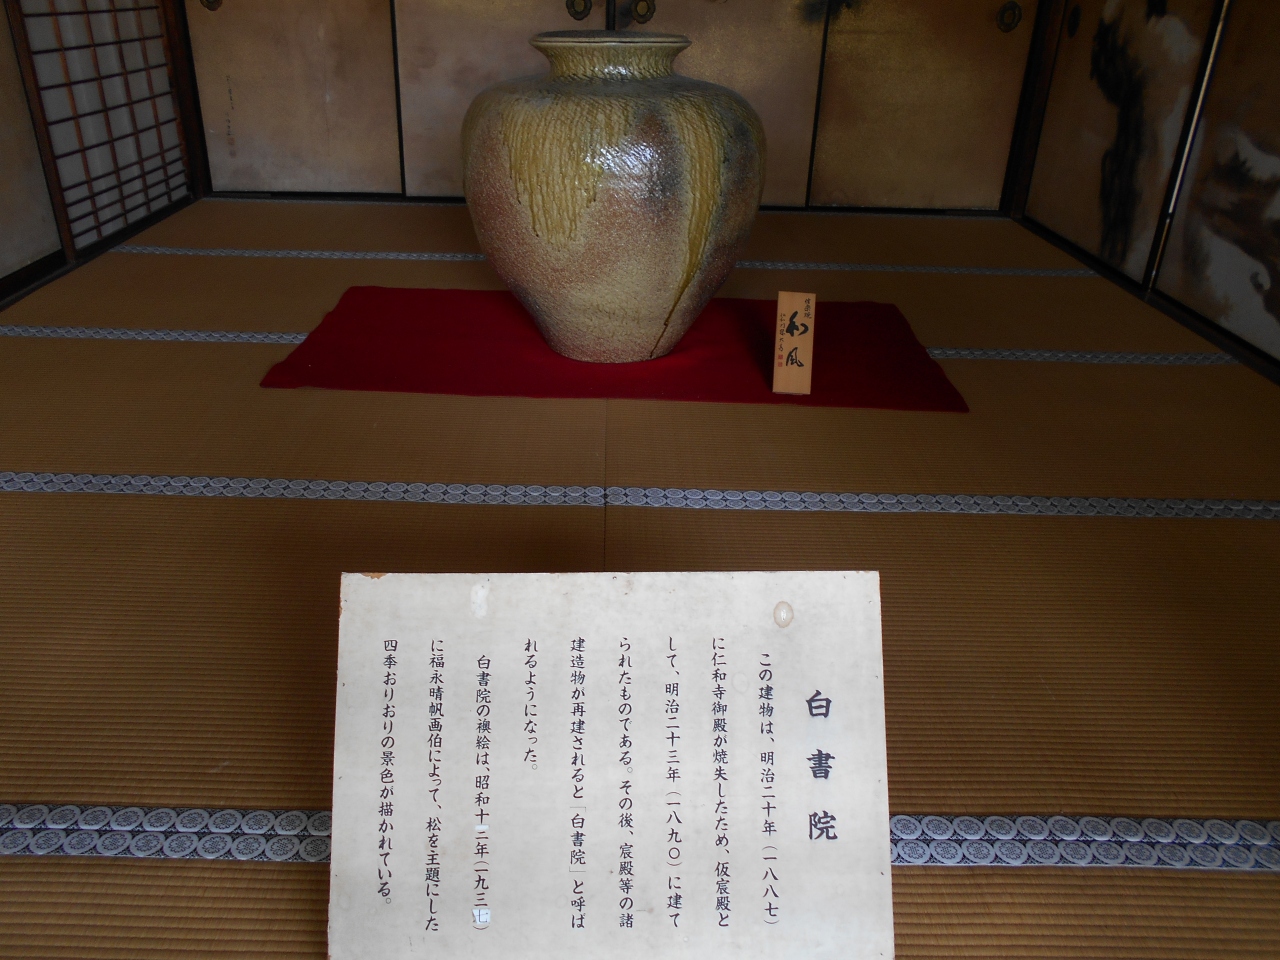 信楽焼
和風
白書院
この建物は、明治二十年（一八八七）
に仁和寺御殿が焼失したため、仮宸殿と
して、明治二十三年（一八九〇）に建て
られたものである。その後、宸殿等の諸
建造物が再建されると「白書院」と呼ば
れるようになった。
白書院の襖絵は、昭和十二年（一九三七）
に福永晴帆画伯によって、松を主題にした
四季おりおりの景色が描かれている。